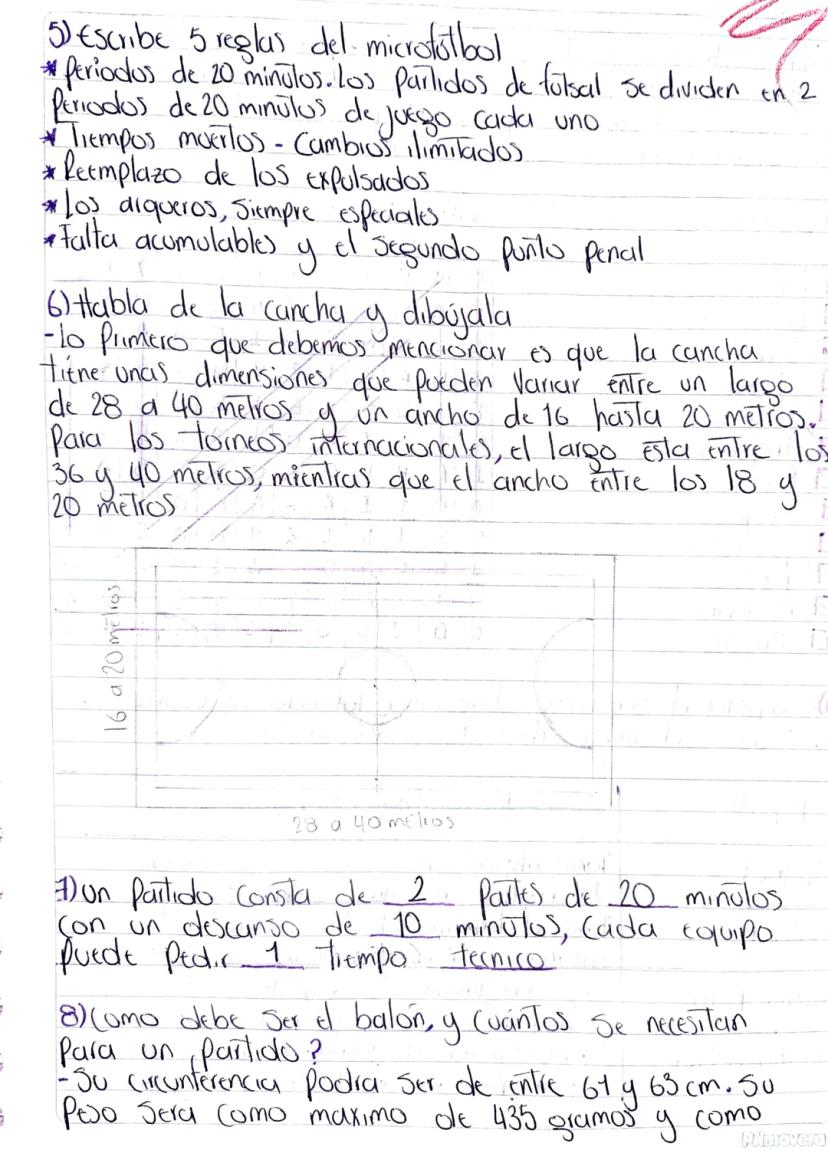 5) Escribe 5 reglas del microfútbol
* Periodos de 20 minutos. Los partidos de futsal se dividen en 2
periodos de 20 minutos de juego cada uno
* Tiempos muertos - Cambios ilimitados
* Reemplazo de los expulsados
* Los arqueros, siempre especiales
* Falta acumulables y el segundo punto penal
6) Habla de la cancha y dibújala
- lo primero que debemos mencionar es que la cancha
tiene unas dimensiones que pueden variar entre un largo
de 28 a 40 metros y un ancho de 16 hasta 20 metros.
Para los torneos internacionales, el largo esta entre los
36 y 40 metros, mientras que el ancho entre los 18 y
20 metros
16 a 20 metros
28 a 40 metros
7) Un partido consta de 2 partes de 20 minutos
con un descanso de 10 minutos, Cada equipo
puede pedir 1 tiempo tecnico
8) Como debe ser el balón, y cuántos se necesitan
para un partido?
- Su circunferencia podra ser de entre 61 y 63 cm. Su
peso sera como maximo de 435 gramos y como
Primavera